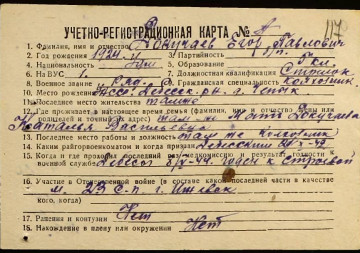 117
УЧЕТНО-РЕГИСТРАЦИОННАЯ КАРТА №
1. Фамилия, имя и отчество Докучаев Егор Павлович
2. Год рождения 1924 3. Партийность б/п
4. Национальность 5. Пол
6. На ВУС 1 7. Должностная квалификация Стрелок
8. Военное звание 9. Гражданская специальность Колхозник
10. Место рождения УАССР, Дебесск. рн. д.
11. Последнее место жительства там же
12. Где проживает в настоящее время семья (фамилия, имя и отчество жены или
родителей и точный адрес) там-же Мать Докучаева
Наталья Васильевна
13. Последнее место работы и должность там же колхозник
14. Каким райгорвоенкоматом и когда призван Дебесским
15. Когда и где проходил последний раз медкомиссию и результат годности к
военной службе годен к строевой
16. Участие в Отечественной войне (в составе какой последней части в качестве
кого, когда)
М. 23 С.П. г. Ижевск
17. Ранения и контузии Нет
18. Нахождение в плену или окружении Нет